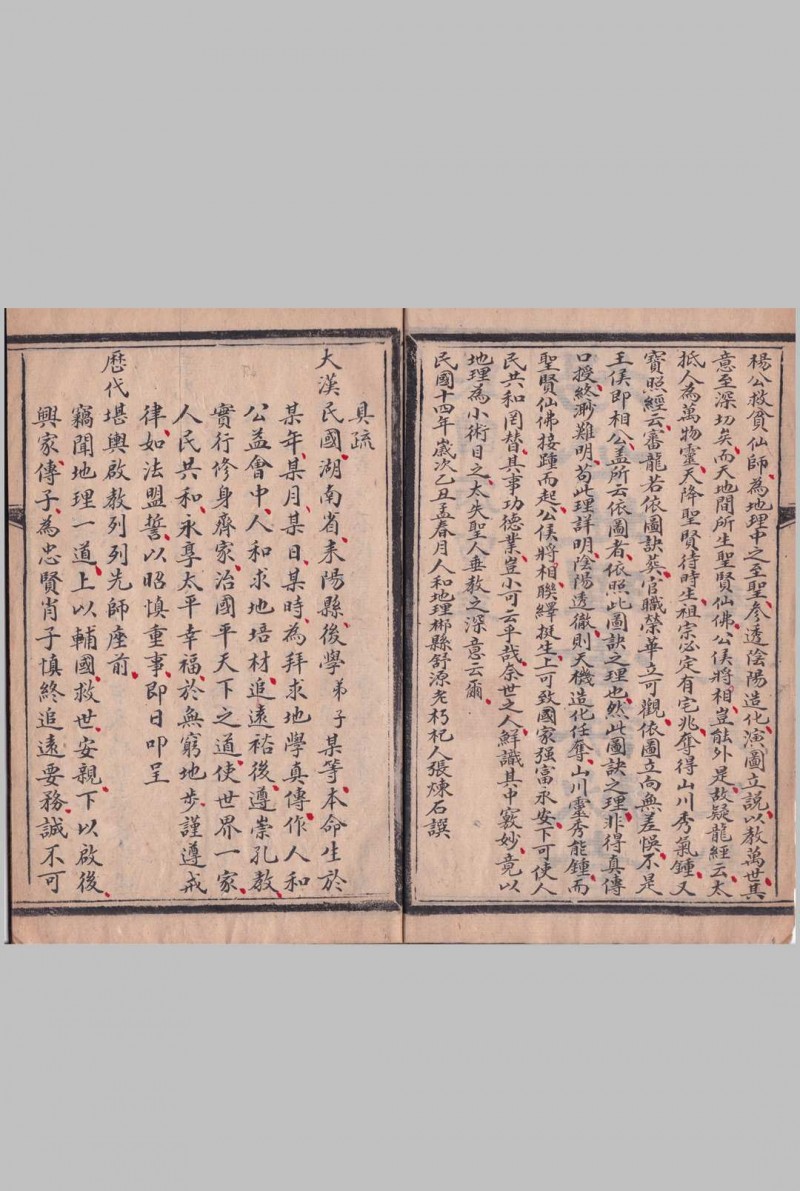 楊公救貧仙師為地理中之至聖參透陰陽造化演圖立說以教萬世其
意至深切矣而天地間所生聖賢仙佛公侯將相豈能外是故疑龍經云太
抵人為萬物靈天降聖賢待時生祖宗必定有宅兆奪得山川秀氣鍾又
寶照經云審龍若依圖訣葬官職榮華立可觀依圖立向無差悞不是
王侯即相公蓋所云依圖者依照此圖訣之理也然此圖訣之理非得真傳
口授終渺難明苟此理詳明陰陽透徹則天機造化任奪山川靈秀能鍾而
聖賢仙佛接踵而起公侯將相聯繹挺生上可致國家强富永安下可使人
民共和罔替其事功德業豈小可云乎哉奈世之人鮮識其中竅妙竟以
地理為小術目之太失聖人垂教之深意云爾
民國十四年歲次乙丑孟春月人和地理郴縣舒源老朽杞人張煉石譔
具疏
大漢民國湖南省耒陽縣後學弟子某等本命生於
某年某月某日某時為拜求地學真傳作人和
公益會中人和求地培材追遠裕後遵崇孔教
實行修身齊家治國平天下之道使世界一家
人民共和永享太平幸福於無窮地步謹遵戒
律如法盟誓以昭慎重事即日叩呈
歷代堪輿啟教列列先師座前
竊聞地理一道上以輔國救世安親下以啟後
興家傳子為忠賢肖子慎終追遠要務誠不可